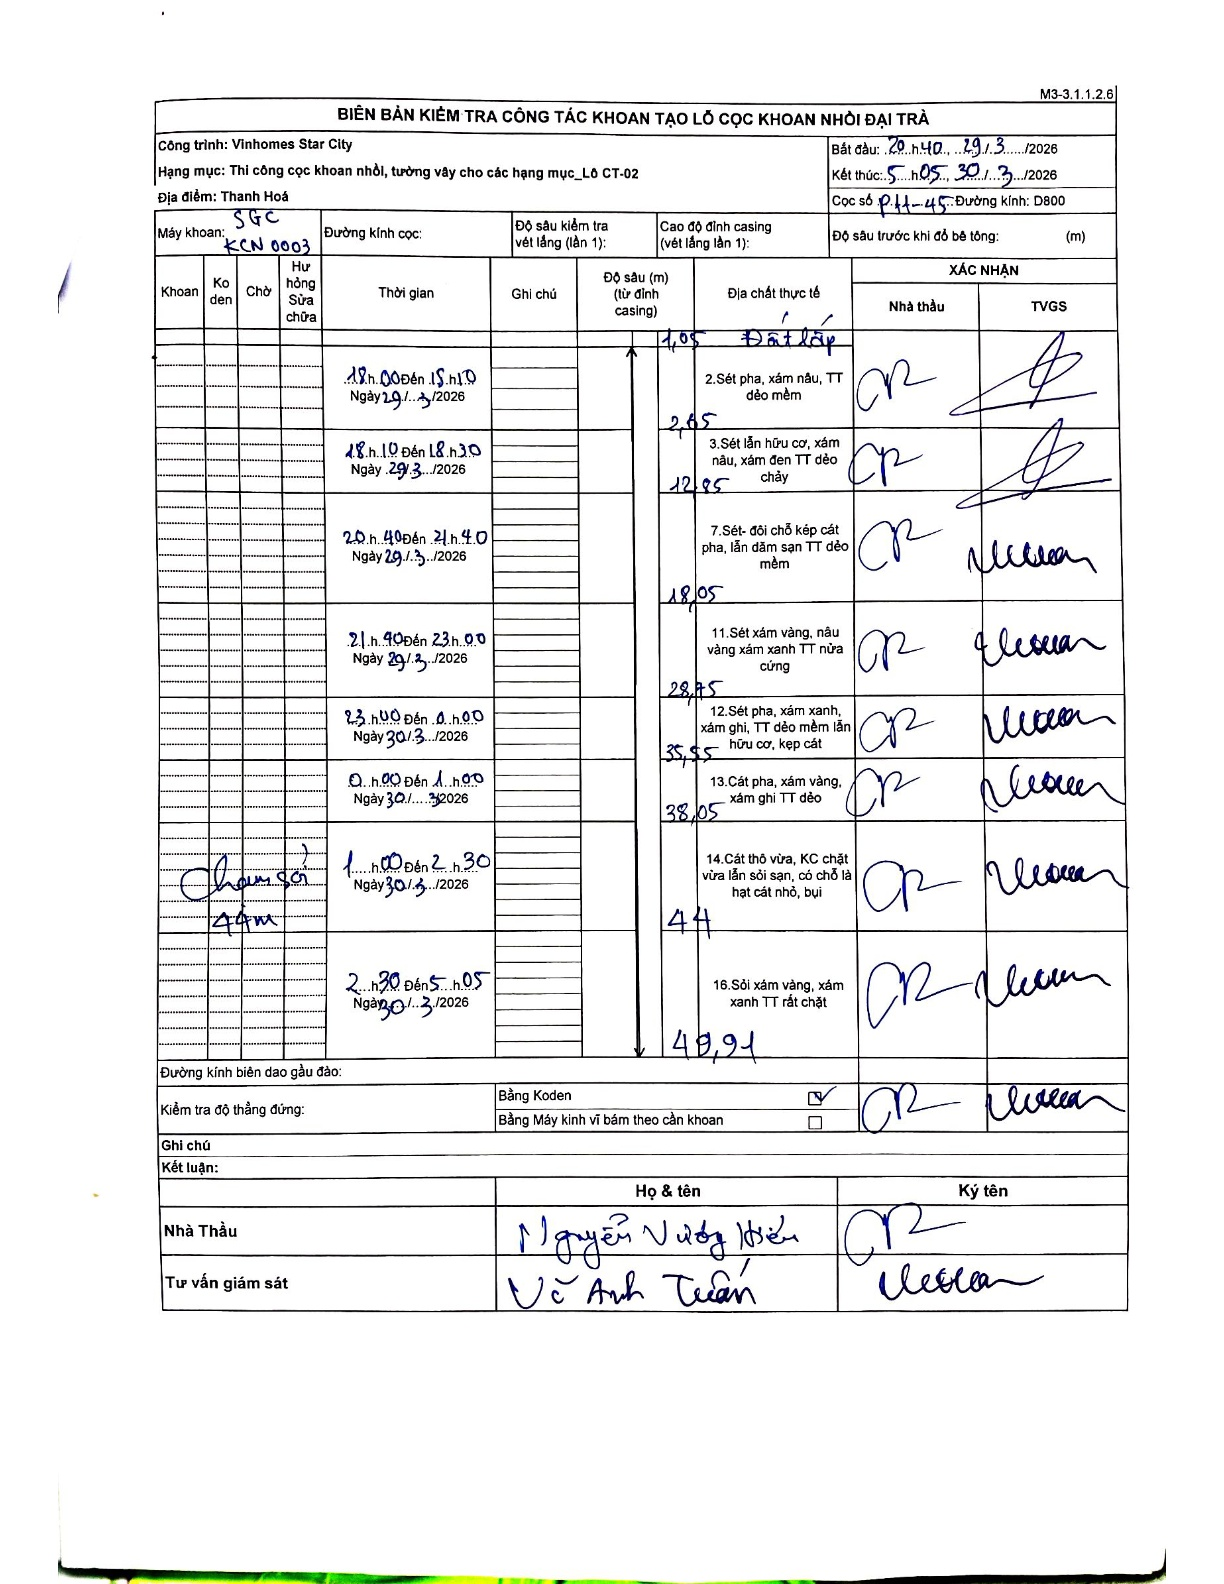 M3-3.1.1.2.6
BIÊN BẢN KIỂM TRA CÔNG TÁC KHOAN TẠO LỖ CỌC KHOAN NHỒI ĐẠI TRÀ
Công trình: Vinhomes Star City
Hạng mục: Thi công cọc khoan nhồi, tường vây cho các hạng mục_Lô CT-02
Địa điểm: Thanh Hoá
Bắt đầu: 20.h.40, 29/.3./2026
Kết thúc: 5.h.05, 30/.3./2026
Cọc số P.11-45 Đường kính: D800
Máy khoan: SGC
KCN 0003
Đường kính cọc:
Độ sâu kiểm tra
vét lắng (lần 1):
Cao độ đỉnh casing
(vét lắng lần 1):
Độ sâu trước khi đổ bê tông: (m)
Khoan
Ko
den
Chờ
Hư
hỏng
Sửa
chữa
Thời gian
Ghi chú
Độ sâu (m)
(từ đỉnh
casing)
Địa chất thực tế
XÁC NHẬN
Nhà thầu
TVGS
1,05 Đất lấp
18.h.00 Đến 18.h10
Ngày 29/.3./2026
2.Sét pha, xám nâu, TT
dẻo mềm
2,65
18.h.10 Đến 18.h30
Ngày 29/.3./2026
3.Sét lẫn hữu cơ, xám
nâu, xám đen TT dẻo
chảy
12,85
20.h.40 Đến 21.h.40
Ngày 29/.3./2026
7.Sét- đôi chỗ kép cát
pha, lẫn dăm sạn TT dẻo
mềm
18,05
21.h.40 Đến 23.h.00
Ngày 29/.3./2026
11.Sét xám vàng, nâu
vàng xám xanh TT nửa
cứng
28,75
23.h00 Đến 0.h00
Ngày 30/.3./2026
12.Sét pha, xám xanh,
xám ghi, TT dẻo mềm lẫn
hữu cơ, kẹp cát
35,55
0.h00 Đến 1.h00
Ngày 30/.3/2026
13.Cát pha, xám vàng,
xám ghi TT dẻo
38,05
1.h00 Đến 2.h30
Ngày 30/.3./2026
14.Cát thô vừa, KC chặt
vừa lẫn sỏi sạn, có chỗ là
hạt cát nhỏ, bụi
Chạm sỏi
44m
44
2.h30 Đến 5.h05
Ngày 30/.3./2026
16.Sỏi xám vàng, xám
xanh TT rất chặt
49,91
Đường kính biên dao gầu đào:
Kiểm tra độ thẳng đứng:
Bằng Koden ☑
Bằng Máy kinh vĩ bám theo cần khoan ☐
Ghi chú
Kết luận:
Họ & tên
Ký tên
Nhà Thầu
Nguyễn Vương Hiếu
Tư vấn giám sát
Võ Anh Tuấn